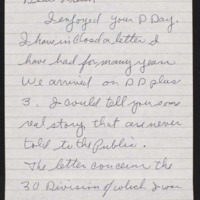 I enjoyed your D Day.
I have in Closed a letter I
have had for many years
We arrived on D D plus
3. I could tell you some
real story that are never
told to the Public.
The letter concern the
30 Division of which I was